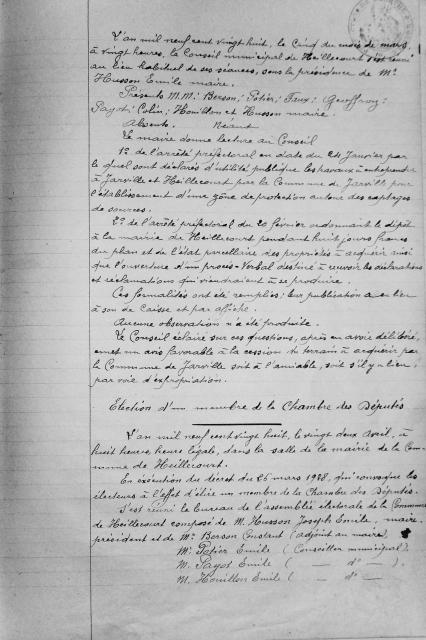 L'an mil neuf cent vingt huit, le Cinq du mois de mars,
à vingt heures, le Conseil municipal de Heillecourt s'est réuni
au lieu habituel de ses séances, sous la présidence de Mr
Husson Emile maire.
Présents M.M. : Berson; Potier; Faux; Geoffroy;
Payot; Colin; Houillon et Husson maire.
Absents. Néant
Le maire donne lecture au Conseil
1º de l'arrêté préfectoral en date du 24 Janvier par
lequel sont déclarés d'utilité publique les travaux à entreprendre
à Jarville et Heillecourt par la Commune de Jarville pour
l'établissement d'une zone de protection autour des captages
de sources.
2º de l'arrêté préfectoral du 20 février ordonnant le dépôt
à la mairie de Heillecourt pendant huit jours francs
du plan et de l'état parcellaire des propriétés à acquérir ainsi
que l'ouverture d'un procès-Verbal destiné à recevoir les déclarations
et réclamations qui viendraient à se produire.
Ces formalités ont été remplies; leur publication a eu lieu
à son de Caisse et par affiche.
Aucune observation n'a été produite.
Le Conseil éclairé sur ces questions, après en avoir délibéré,
émet un avis favorable à la cession du terrain à acquérir par
la Commune de Jarville soit à l'amiable, soit s'il y a lieu,
par voie d'expropriation.
Election d'un membre de la Chambre des Députés
L'an mil neuf cent vingt huit, le vingt deux Avril, à
huit heures, heure légale, dans la salle de la mairie de la Com-
mune de Heillecourt.
En exécution du décret du 25 mars 1928, qui convoque les
électeurs à l'effet d'élire un membre de la Chambre des Députés.
S'est réuni le bureau de l'assemblée électorale de la Commune
de Heillecourt composé de M. Husson Joseph Emile, maire,
président et de Mr Berson Constant (adjoint au maire),
Mr Potier Emile (Conseiller municipal)
M. Payot Emile ( — dº — ).
M. Houillon Emile ( — dº —